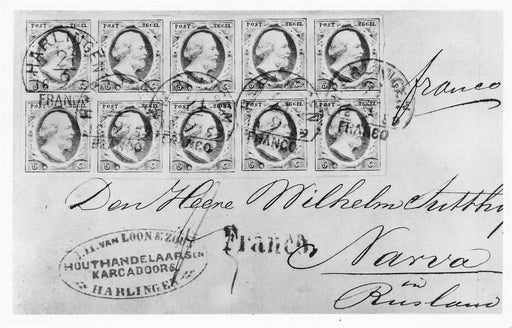 POST ZEGEL POST ZEGEL POST ZEGEL POST ZEGEL POST ZEGEL
HARLINGEN
FRANCO
franco
POST ZEGEL POST ZEGEL POST ZEGEL POST ZEGEL POST ZEGEL
FRANCO FRANCO FRANCO FRANCO
Den Heere Wilhelm
Franco.
VAN LOON & ZOON
HOUTHANDELAARS EN
KARGADOORS
HARLINGEN
Narva
in
Rusland